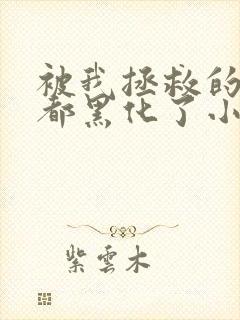 被我拯救的
都黑化了小
紫雲木